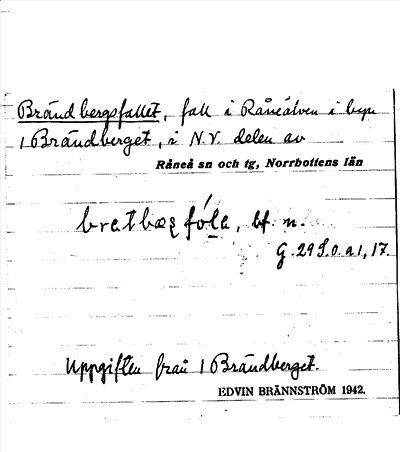 Brändbergsfallet, fall i Råneälven i byn
1 Brändberget, i N.V. delen av
Råneå sn och tg, Norrbottens län
bretbæʒ fóla, bf. n.
G. 29 S.o. a 1, 17.
Uppgiften från 1 Brändberget.
EDVIN BRÄNNSTRÖM 1942.